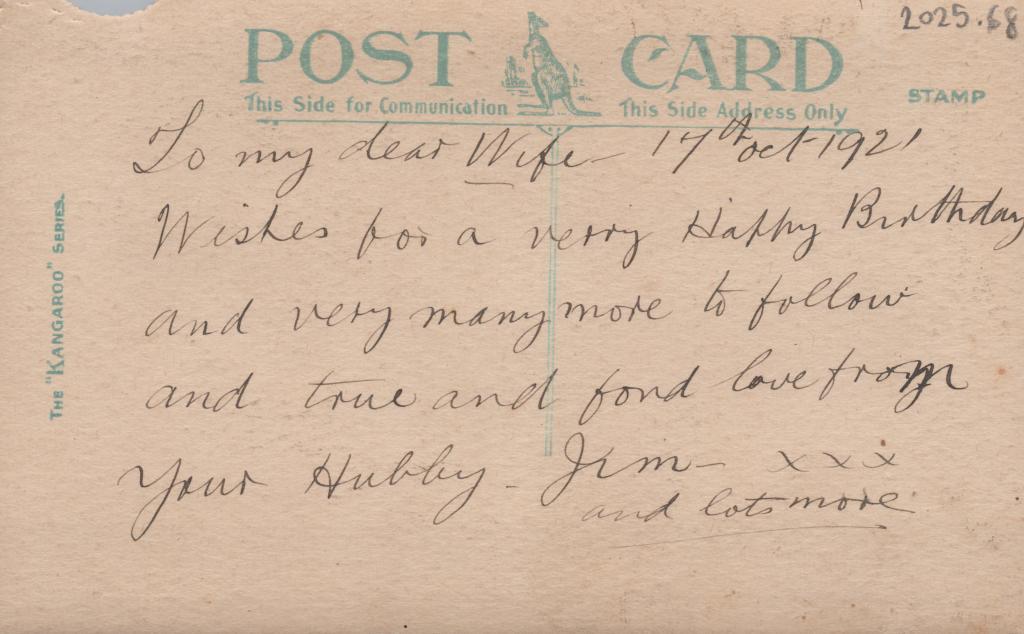 2025.68
POST CARD
This Side for Communication This Side Address Only
STAMP
THE "KANGAROO" SERIES.
To my dear Wife - 17th Oct 1921
Wishes for a verry Happy Birthday
and very many more to follow
and true and fond love from
Your Hubby - Jim - x x x
and lots more